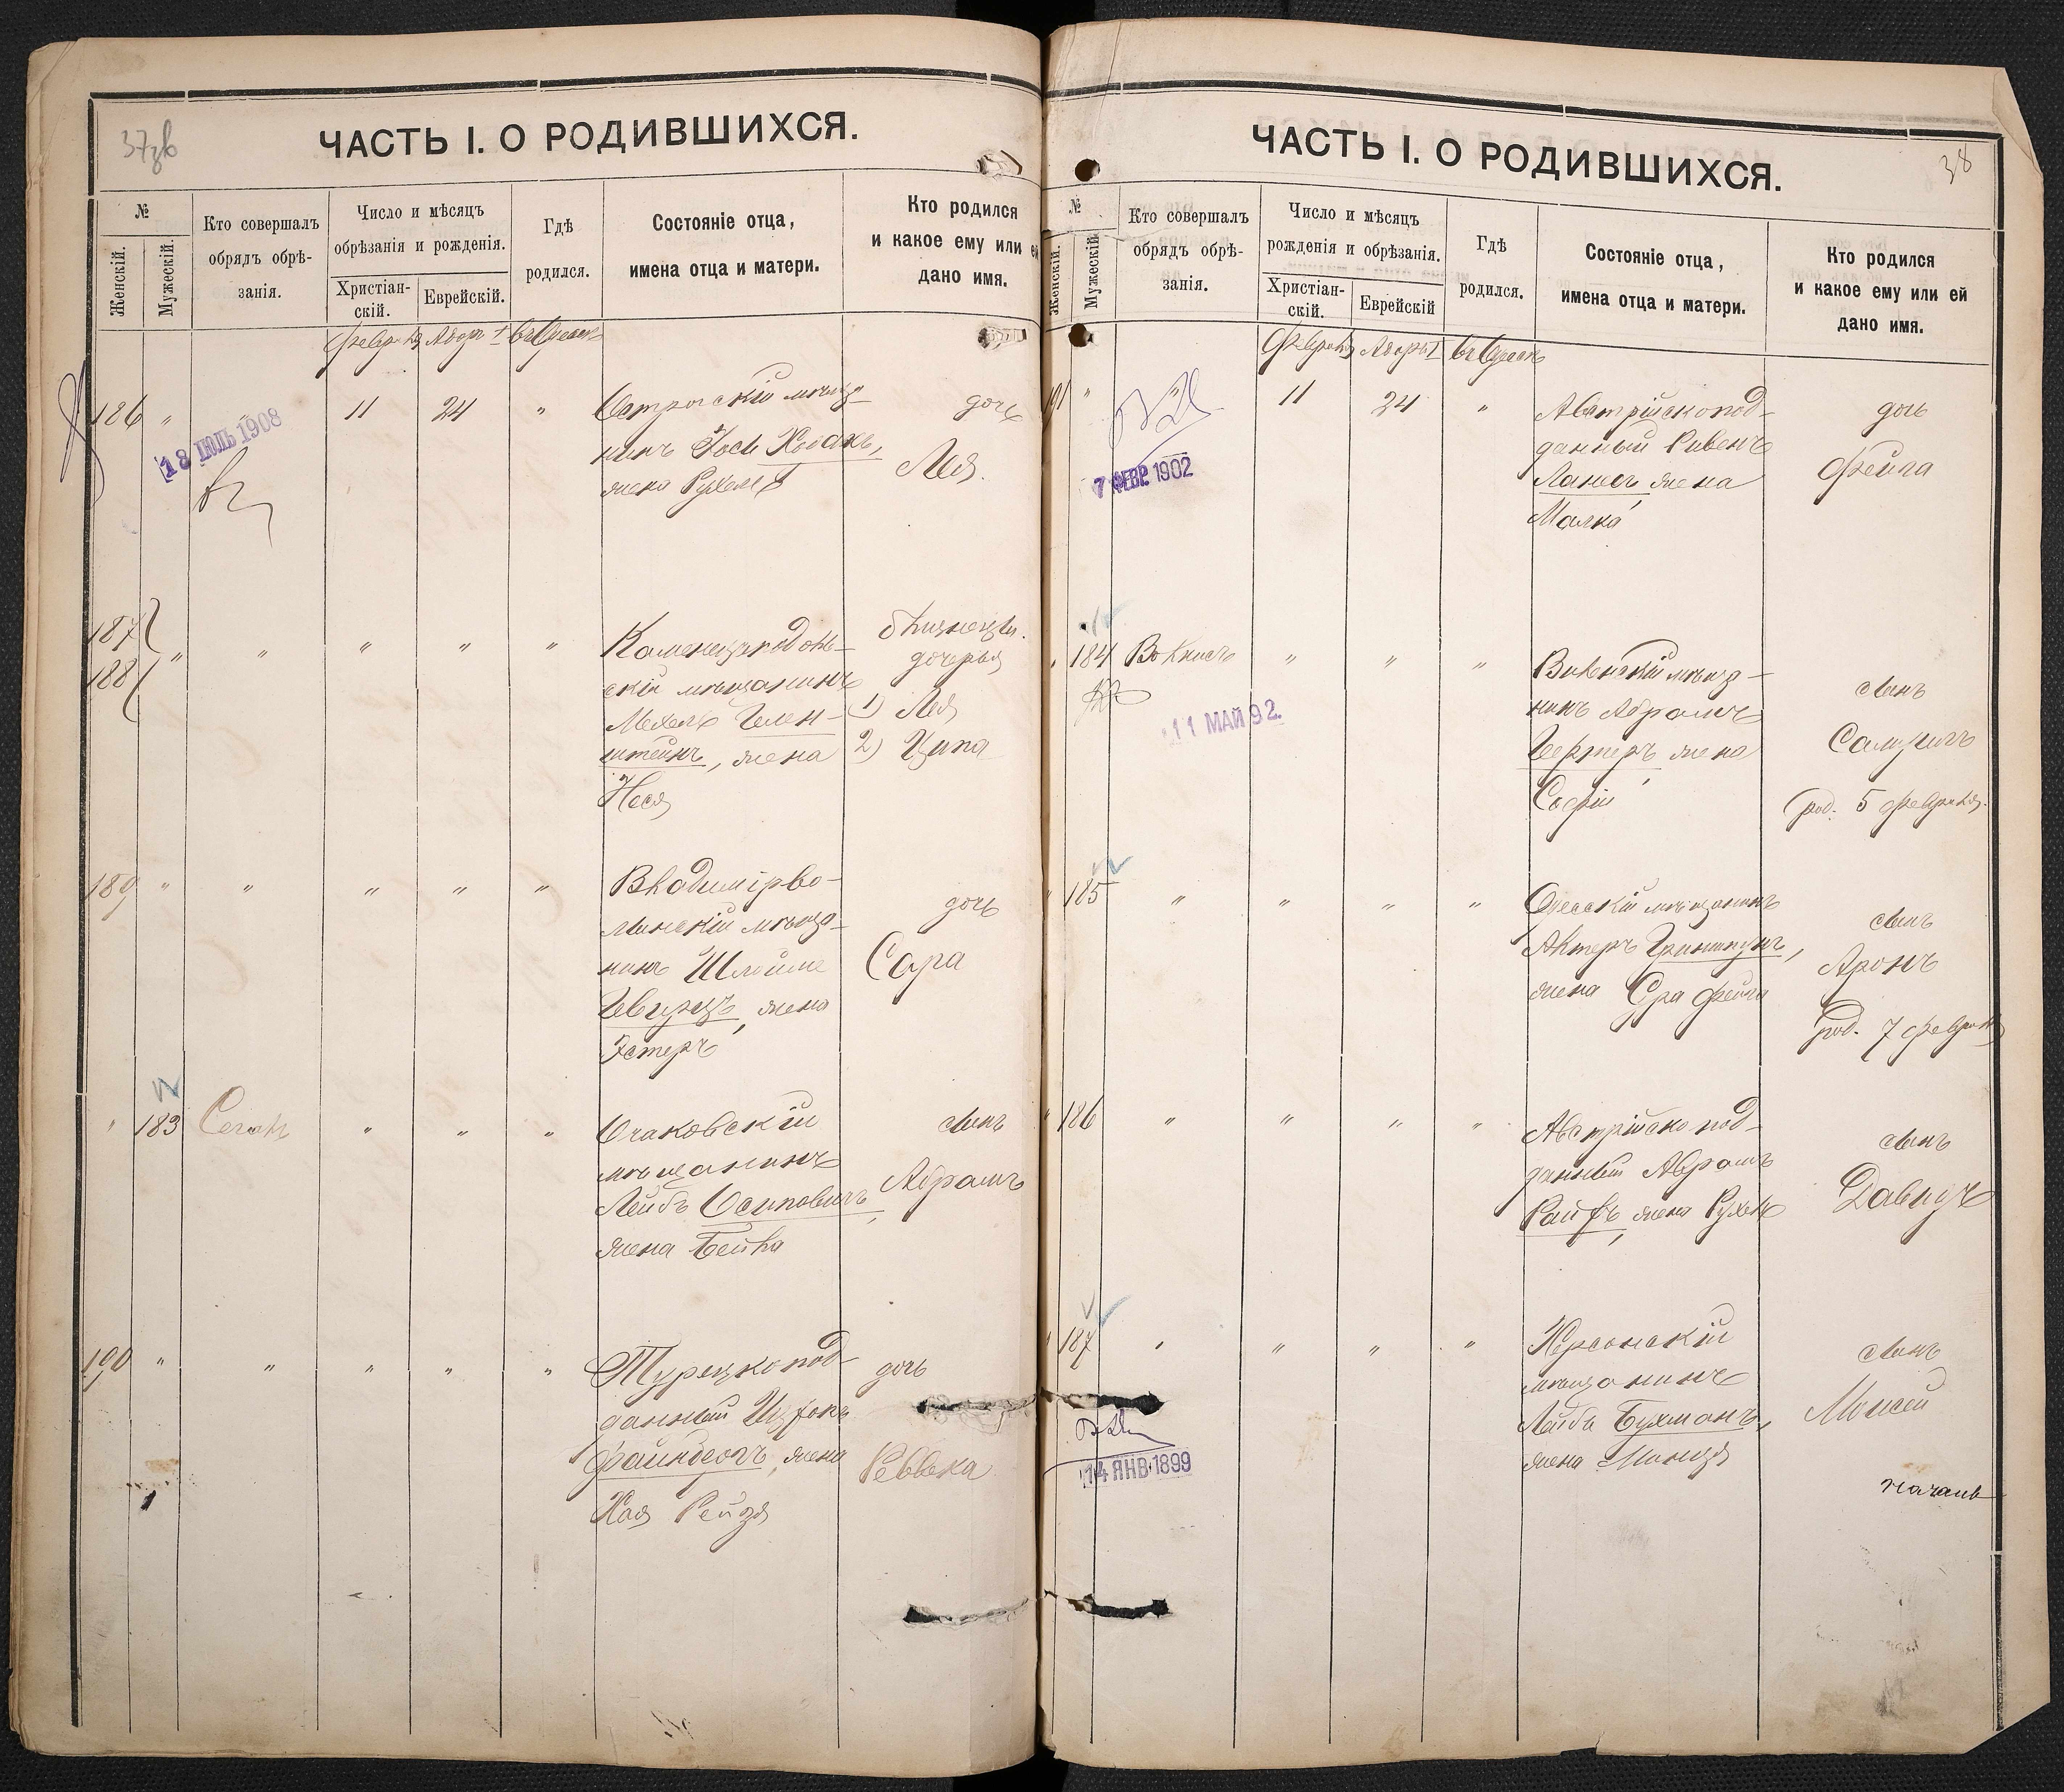 37об
ЧАСТЬ I. О РОДИВШИХСЯ.
№
Женскій.
Мужескій.
Кто совершалъ
обрядъ обрѣ-
занія.
Число и мѣсяцъ
обрѣзанія и рожденія.
Христіан-
скій.
Еврейскій.
Гдѣ
родился.
Состояніе отца,
имена отца и матери.
Кто родился
и какое ему или ей
дано имя.
Февраль Адаръ 1 въ Одессѣ
186 " 11 24 "
18 ІЮЛЬ 1908
Острогскій мѣща-
нинъ Іось
жена Рухель
дочь
Лея.
187
188 " " " " "
Каменецподоль-
скій мѣщанинъ
Мехель Гилен-
штейнъ, жена
Неся
близнецы.
дочерья
1) Лея
2) Ципа
189 " " " " "
Владимірво-
лынскій мѣща-
нинъ Шлойме
Гвирцъ, жена
Эстеръ
дочь
Сара
" 183 Сегалъ " " "
Очаковскій
мѣщанинъ
Лейбъ Осиповичъ,
жена Бейла
сынъ
Абрамъ
190 " " " " "
Турецкопод-
данный Ицхокъ
жена
Хая Рейзя
дочь
Реввека
ЧАСТЬ I. О РОДИВШИХСЯ.
38
№
Женскій.
Мужескій
Кто совершалъ
обрядъ обрѣ-
занія.
Число и мѣсяцъ
рожденія и обрѣзанія.
Христіан-
скій.
Еврейскій
Гдѣ
родился.
Состояніе отца,
имена отца и матери.
Кто родился
и какое ему или ей
дано имя.
Февраль Адаръ 1 въ Одессѣ
191 " 11 24 "
7 ФЕВР. 1902
Австрійскопод-
данный Рувенъ
Лансъ жена
Малка
дочь
Фейга
" 184 " " "
11 МАЙ 92.
Виленскій мѣща-
нинъ Абрамъ
Гертеръ жена
Софія
сынъ
Самуилъ
род. 5 февраля.
" 185 " " " "
Одесскій мѣщанинъ
Актеръ Гриншпунъ,
жена Сура Фейга
сынъ
Аронъ
род. 7 февраля
" 186 " " " "
Австрійскопод-
данный Абрамъ
Райфъ, жена Рухель
сынъ
Давидъ
" 187 " " " "
14 ЯНВ. 1899
Херсонскій
мѣщанинъ
Лейбъ Бухманъ,
жена Миндя
сынъ
Моисей